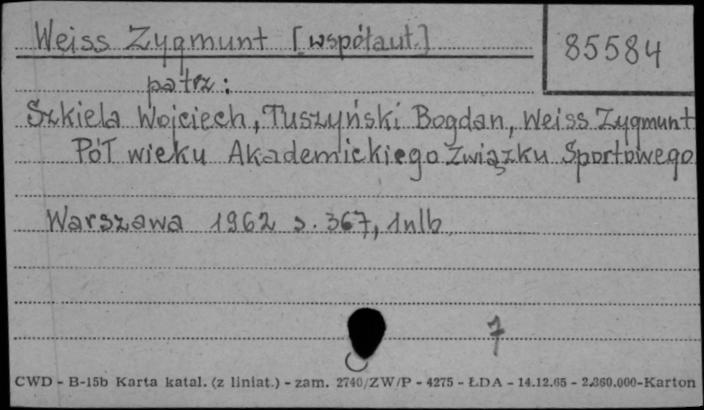 Weiss Zygmunt [współaut.]
85584
patrz:
Szkiela Wojciech, Tuszyński Bogdan, Weiss Zygmunt
Pół wieku Akademickiego Związku Sportowego
Warszawa 1962 s. 367, 1nlb
7
CWD - B-15b Karta katal. (z liniat.) - zam. 2740/ZW/P - 4275 - ŁDA - 14.12.65 - 2.360.000-Karton